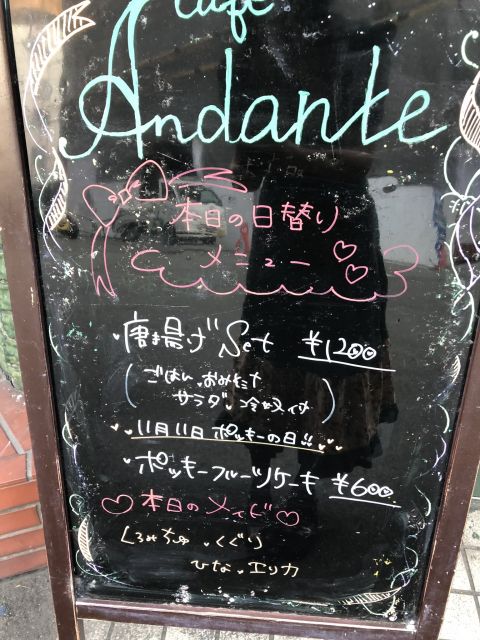 Cafe
Andante
本日の日替り
メニュー
唐揚げSet ¥1200
(ごはん・おみそ汁
サラダ・冷奴付)
11月11日 ポッキーの日!!
ポッキーフルーツケーキ ¥600
♡本日のメイド♡
くぐり
ひな・エリカ